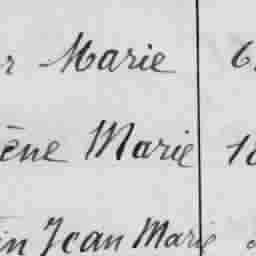 r Marie 6
ène Marie 18
in Jean Marie